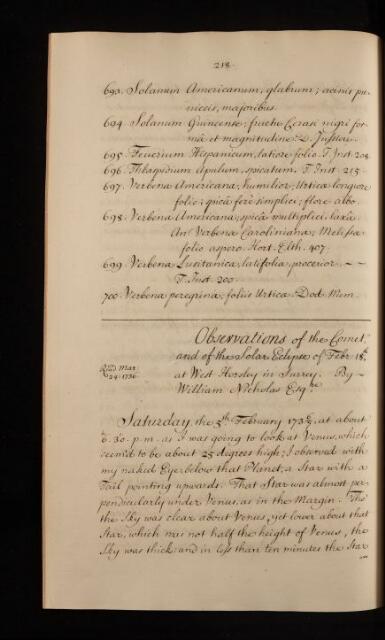 218
693. Solanum Americanum, glabrum; acinis pu-
niceis, majoribus.
694. Solanum Guineense; fructu Cerasi nigri for-
mâ et magnitudine. D. Jussieu.
695. Teucrium Hispanicum, latiore folio. T. Inst. 208.
696. Thlaspidium Apulum, spicatum. T. Inst. 215.
697. Verbena Americana, humilior, Urticæ longiore
folio; spicâ ferè simplici; flore albo.
698. Verbena Americana, spicâ multiplici, laxâ.
An Verbena Caroliniana; Melissæ
folio aspero. Hort. Elth. 407.
699. Verbena Lusitanica, latifolia, procerior. — —
T. Inst. 200.
700. Verbena peregrina, foliis Urticæ. Dod. Mem.
Observations of the Comet,
and of the Solar Eclipse of Febr. 18th
Read Mar.
24. 1736
at West Horsley in Surrey. By —
William Nicholas Esqre.
Saturday, the 5th February 1736/7, at about
6. 30. p. m. as I was going to look at Venus, which
seem'd to be about 25 degrees high; I observed with
my naked Eye below that Planet, a Star with a
Tail pointing upwards. That Star was almost per-
pendicularly under Venus, as in the Margin. Tho'
the Sky was clear about Venus, yet lower about that
Star, which was not half the height of Venus, the
Sky was thick: and in less than ten minutes the Star